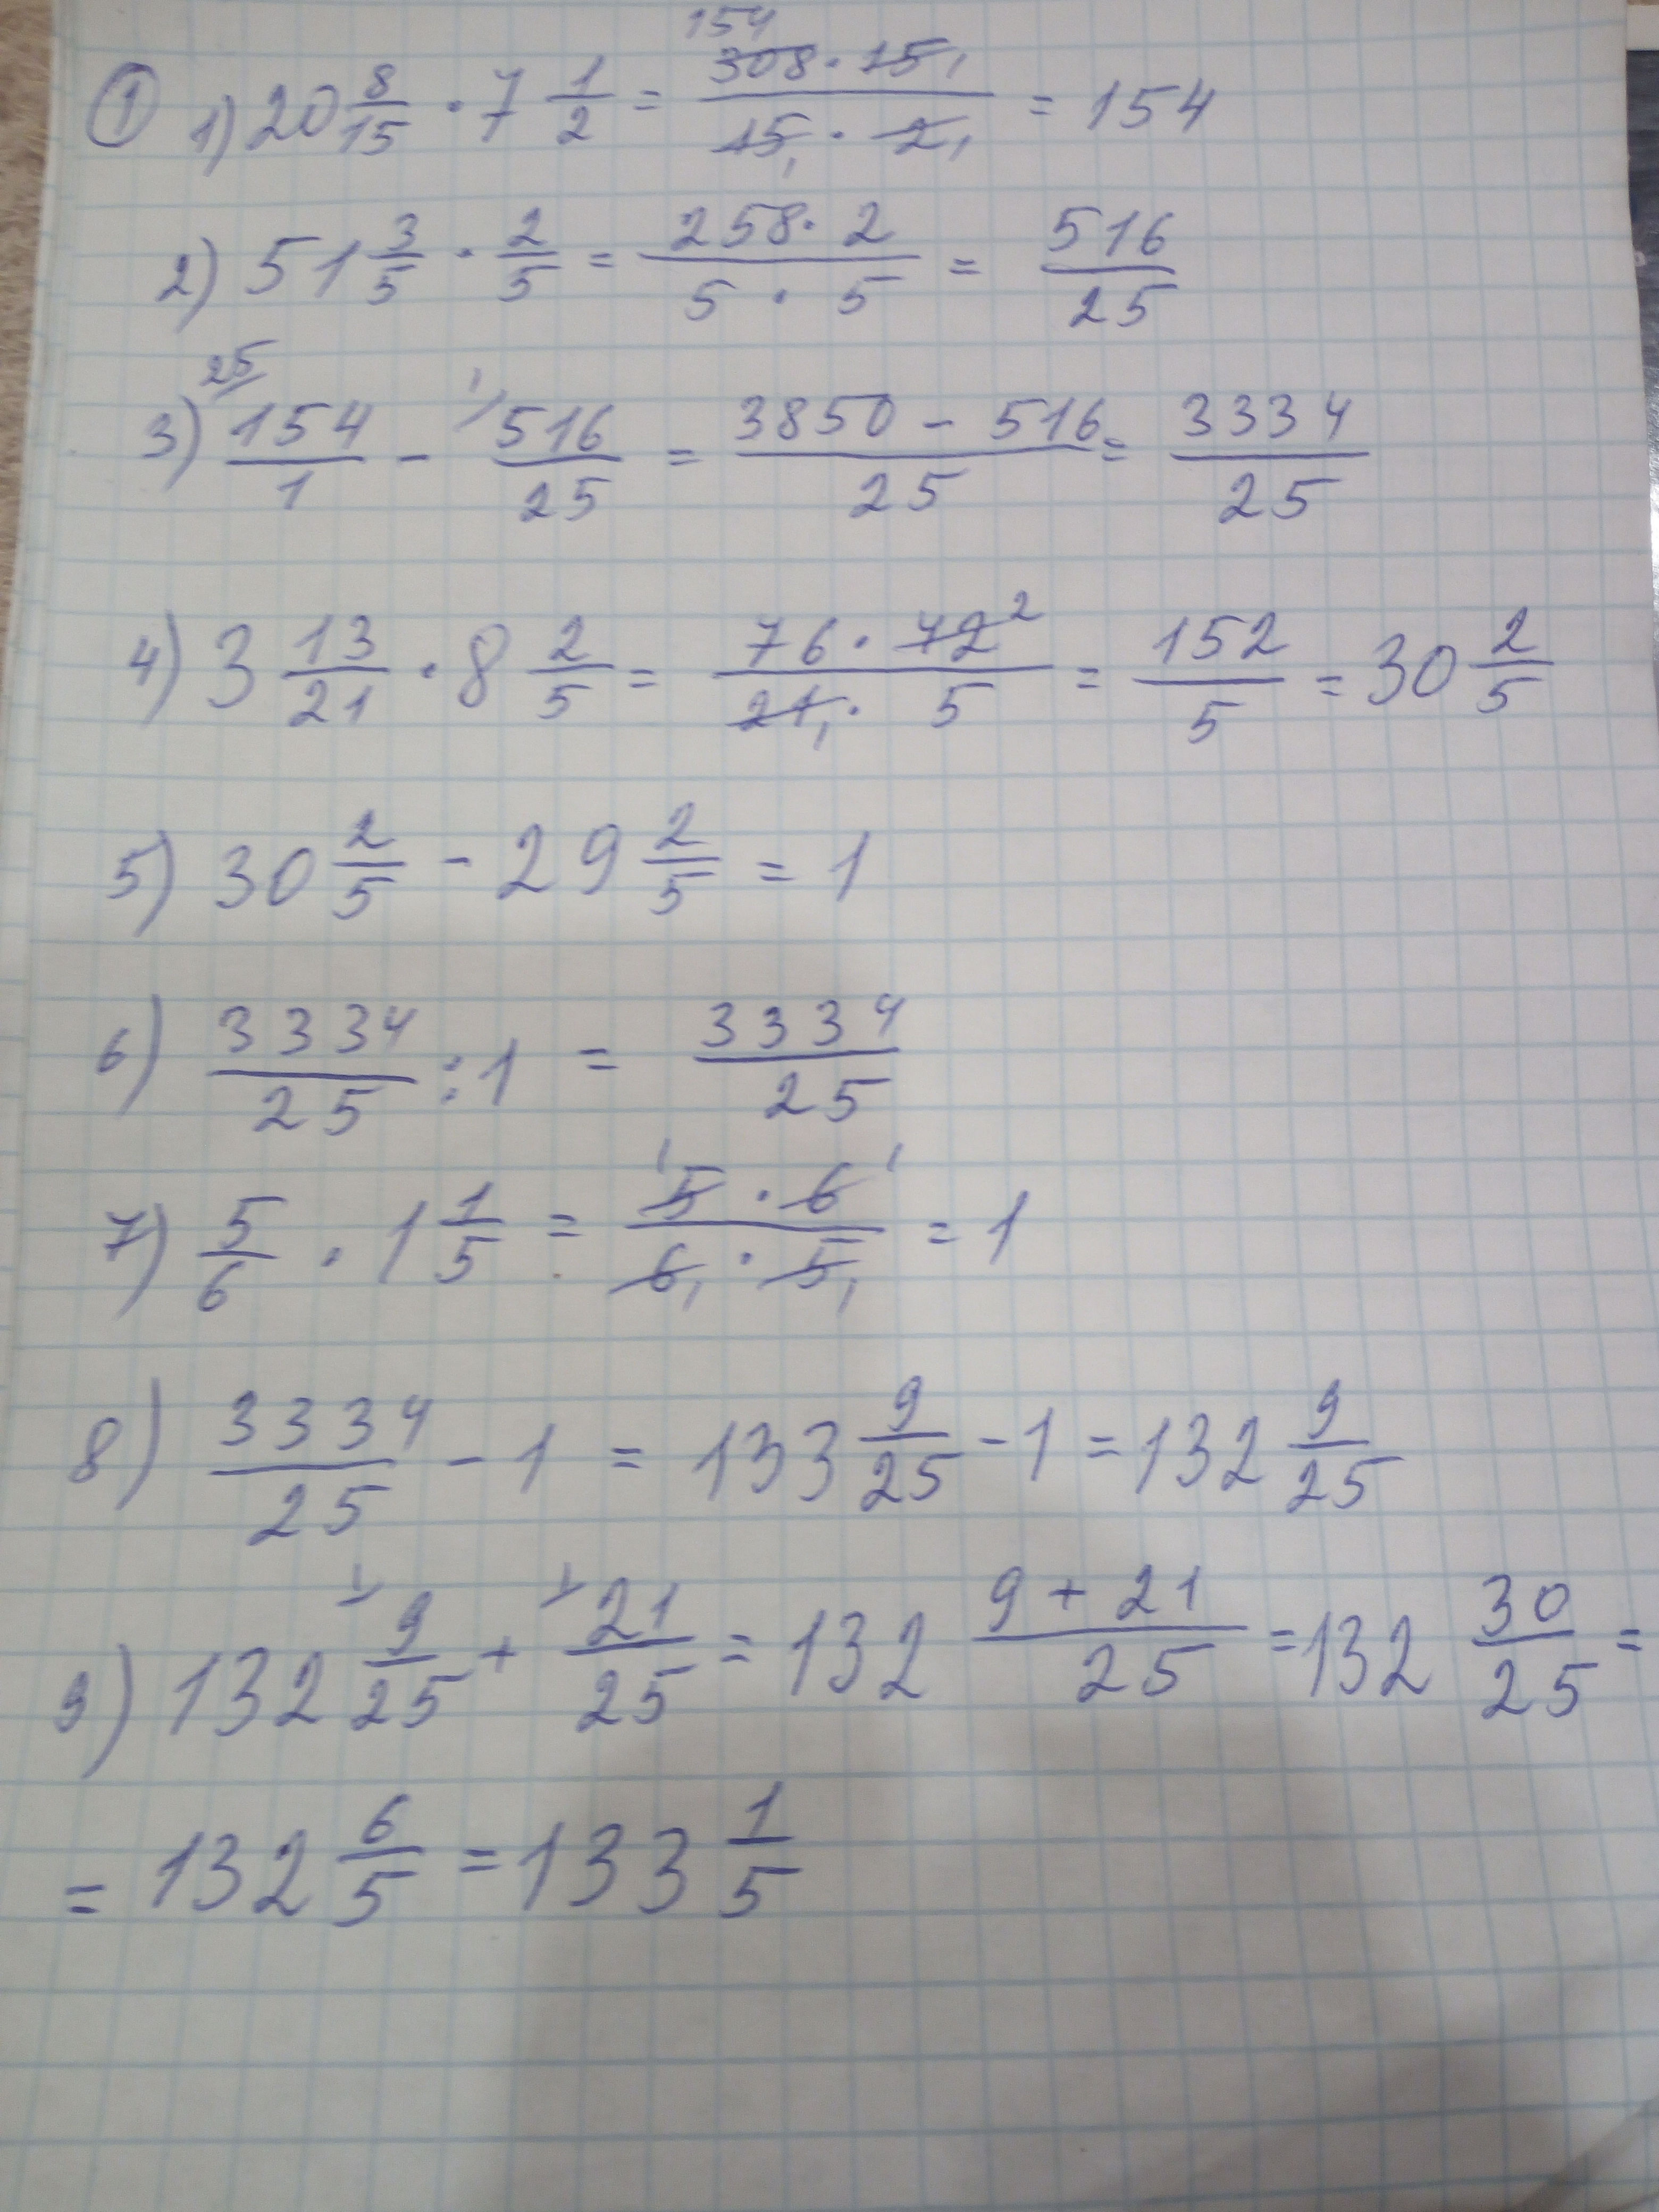 ① 1) 20 8/15 · 7 1/2 = 308 154 · 15 1 / 15 1 · 2 1 = 154
2) 51 3/5 · 2/5 = 258 · 2 / 5 · 5 = 516/25
3) 25/ 154/1 - 1/ 516/25 = 3850 - 516 / 25 = 3334/25
4) 3 13/21 · 8 2/5 = 76 · 42 2 / 21 1 · 5 = 152/5 = 30 2/5
5) 30 2/5 - 29 2/5 = 1
6) 3334/25 : 1 = 3334/25
7) 5/6 · 1 1/5 = 1 5 · 6 1 / 6 1 · 5 1 = 1
8) 3334/25 - 1 = 133 9/25 - 1 = 132 9/25
9) 132 1/ 9/25 + 1/ 21/25 = 132 9 + 21 / 25 = 132 30/25 =
= 132 6/5 = 133 1/5